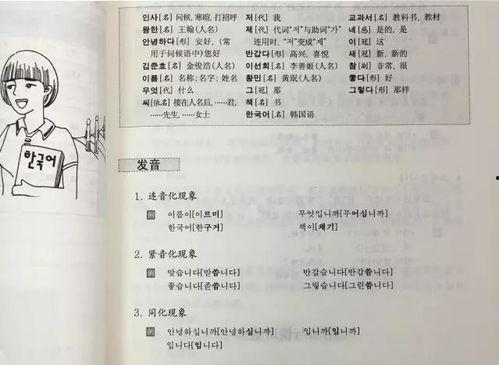 인사 [名] 问候, 寒暄, 打招呼 저 [代] 我 교과서 [名] 教科书, 教材
왕한 [名] 王翰 (人名) 제 [代] 代词“저”与助词“가” 네 [感] 是的, 是
안녕하다 [形] 安好, (常 连用时, “저”变成“제” 이 [冠] 这
用于问候语中) 您好 반갑다 [形] 高兴, 喜悦 새 [冠] 新, 新的
김준호 [名] 金俊浩 (人名) 이선희 [名] 李善姬 (人名) 참 [副] 非常, 很
이름 [名] 名称; 名字; 姓名 황민 [名] 黄珉 (人名) 좋다 [形] 好
무엇 [代] 什么 그 [冠] 那 그렇다 [形] 那样
씨 [依名] 接在人名后, ……君, 책 [名] 书
……先生, ……女士 한국어 [名] 韩国语
한국어
发音
1. 连音化现象
例 이름이[이르미] 무엇입니까[무어심니까]
한국어[한구거] 책이[채기]
2. 紧音化现象
例 맞습니다[맏씀니다] 반갑습니다[반갑씀니다]
좋습니다[졷씀니다] 그렇습니다[그럳씀니다]
3. 同化现象
例 안녕하십니까[안녕하심니까] 입니까[임니까]
입니다[임니다]